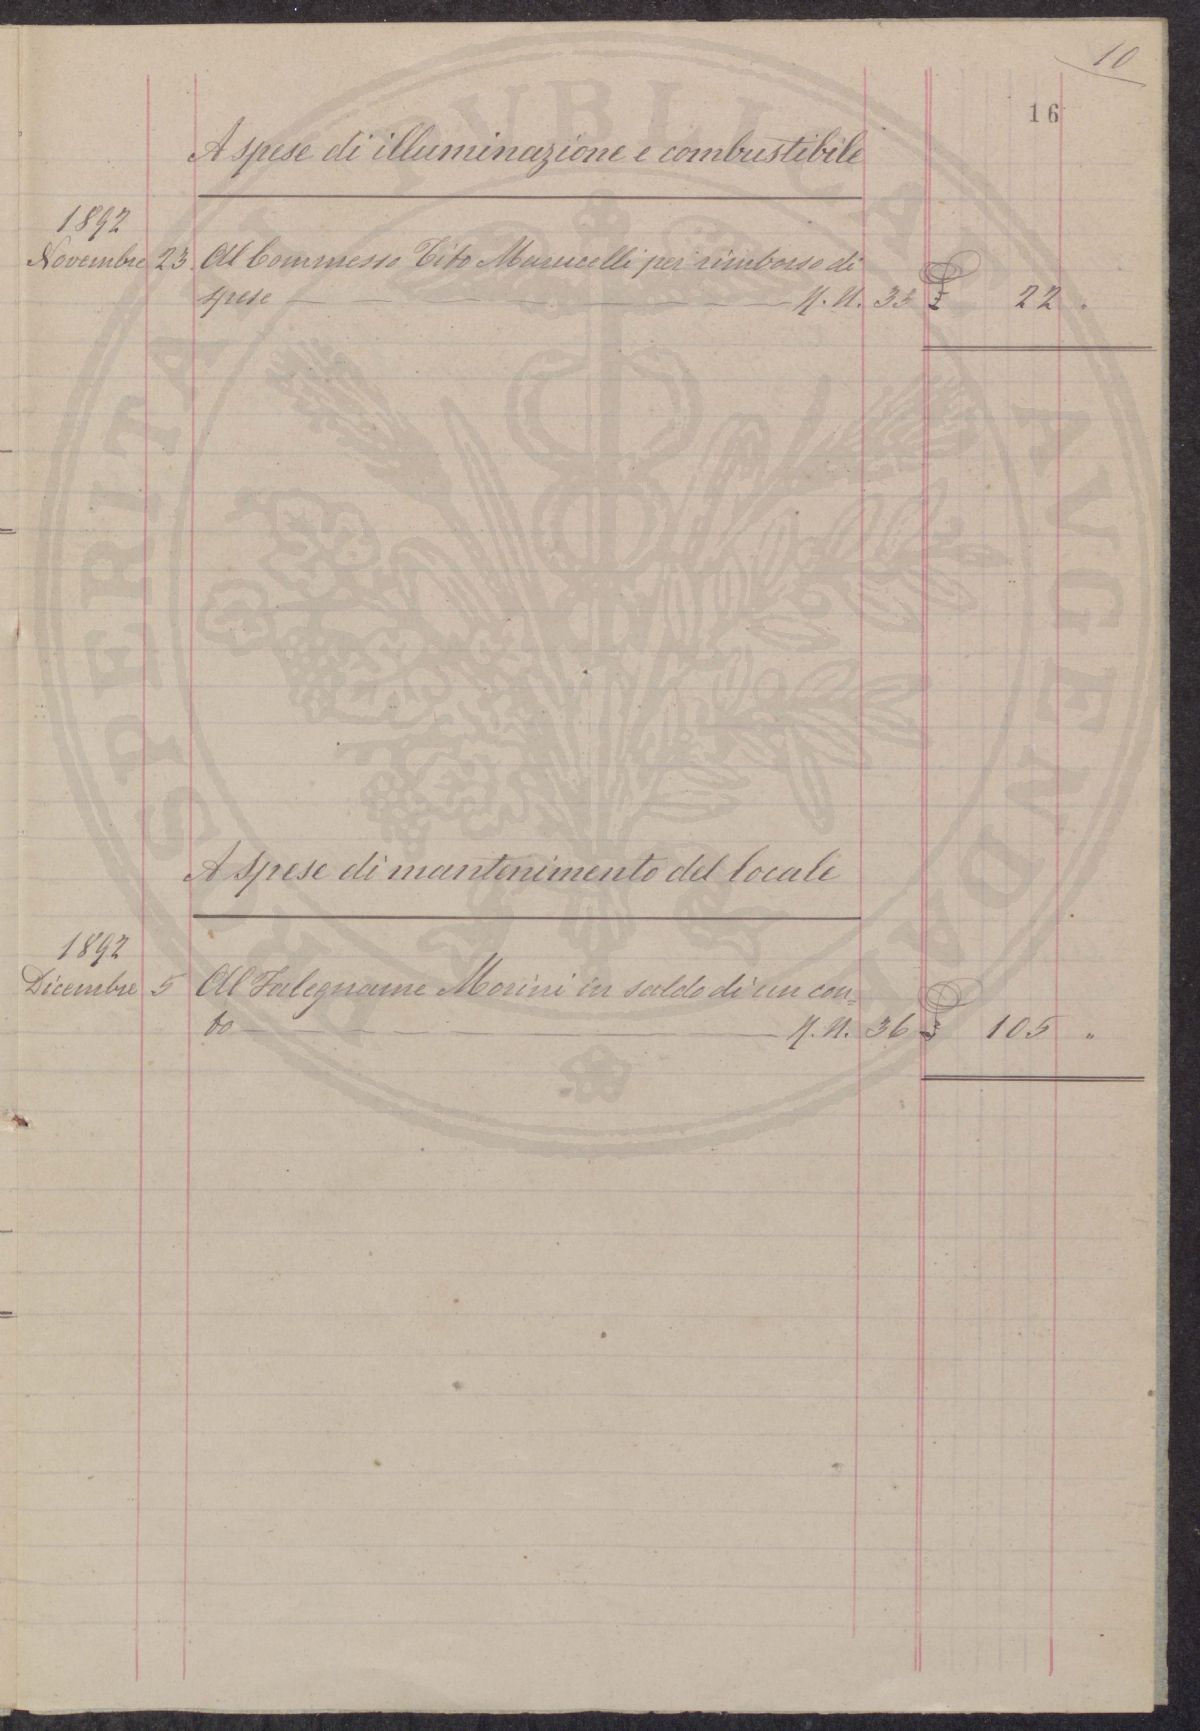 10
16
A spese di illuminazione e combustibile
1892
Novembre 23 Al Commesso Tito Marucelli per rimborso di
spese M. N. 33 £ 22 "
A spese di mantenimento del locale
1892
Dicembre 5 Al Falegname Morini in saldo di un con=
to M. N. 36 £ 105 "
PUBLICAE AVGENDAE PROSPERITATI